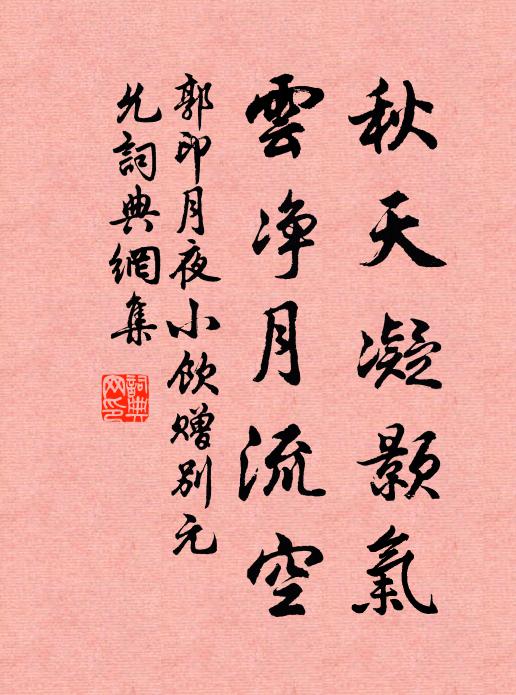 秋天凝顥氣
雲净月流空
郭印月夜小飲贈別元
允詞典網集
詞典網印